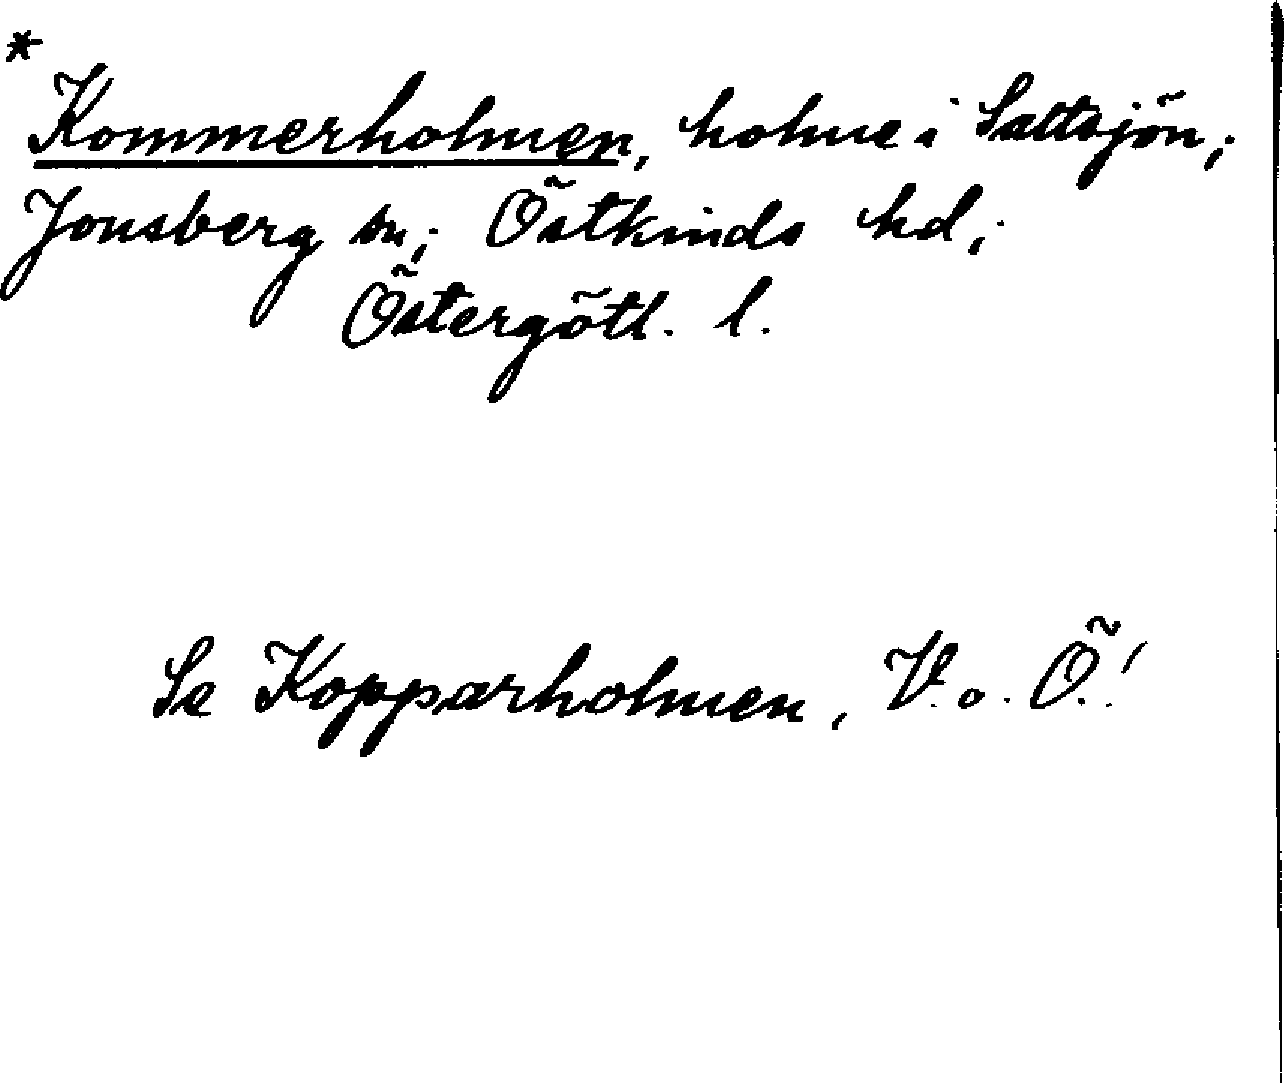 *
Kommerholmen, holme i Saltsjön;
Jonsberg sn; Östkinds hd;
Östergötl. l.
Se Kopparholmen, V. o. Ö.!